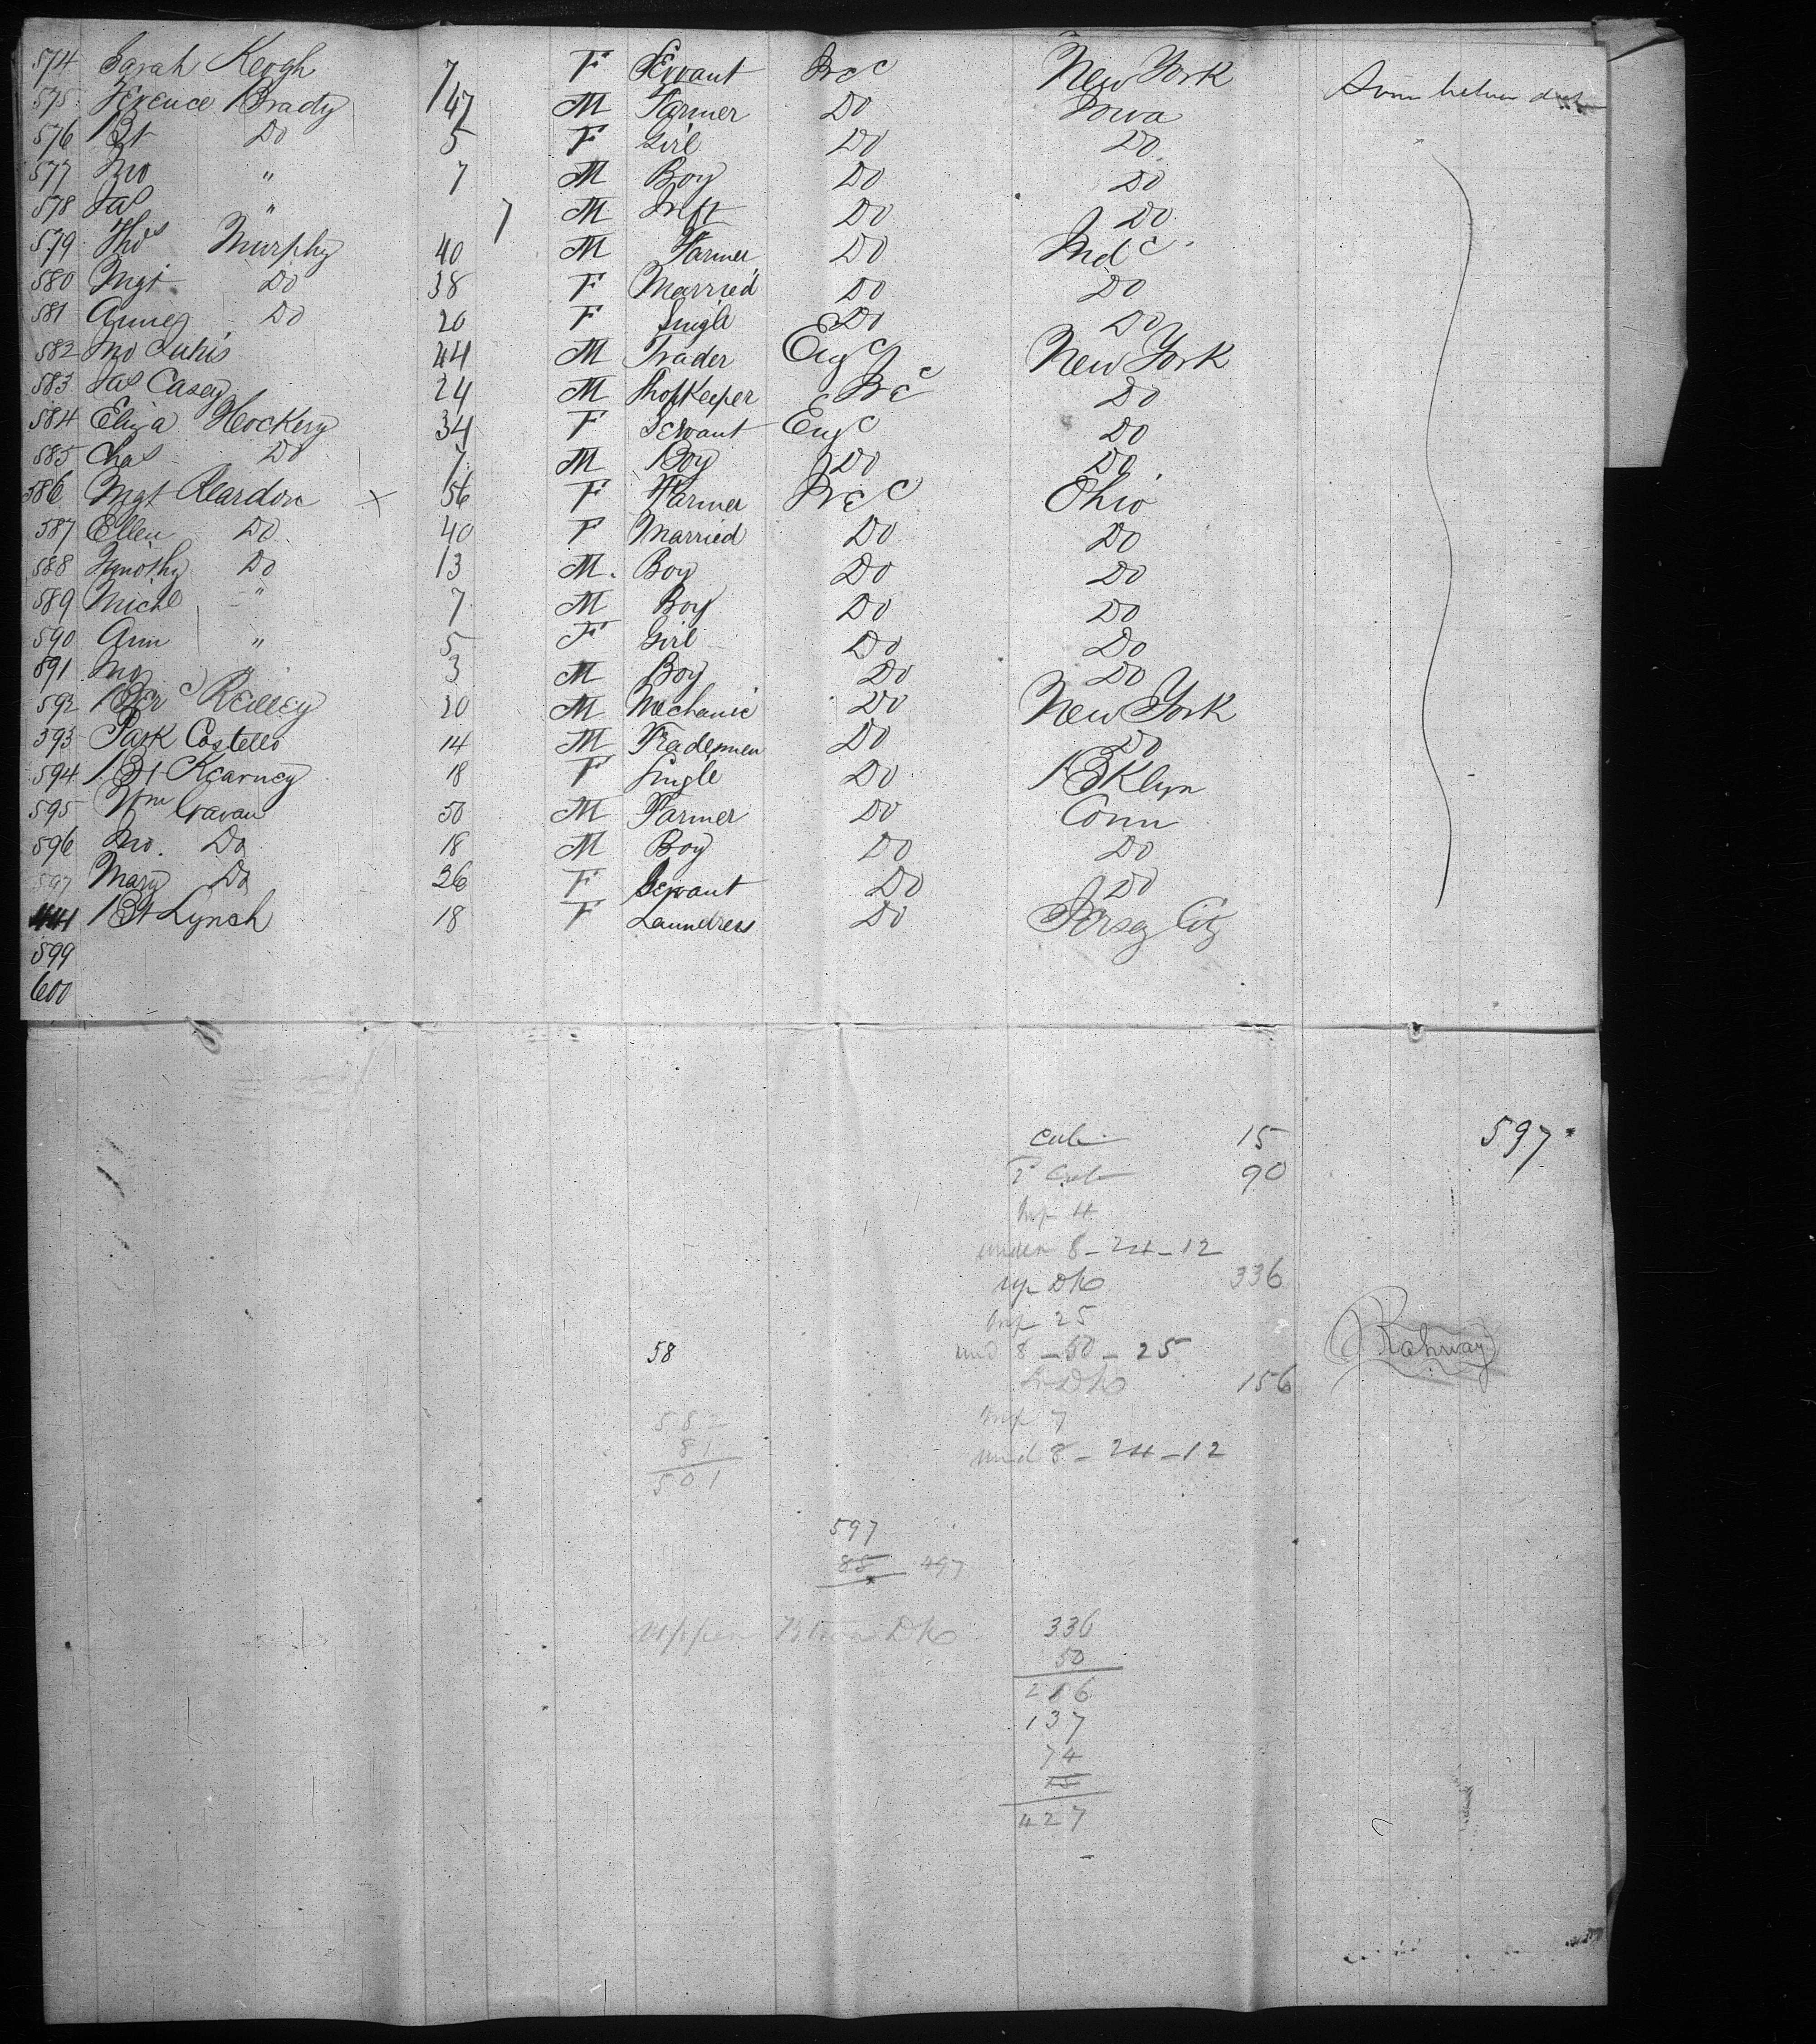 574 Sarah Keogh 7 F Servant Ire New York
575 Terence Brady 47 M Farmer Do Iowa
576 Bt Do 5 F Girl Do Do
577 Jno " 7 M Boy Do Do
578 Jas " 7 M Inft Do Do
579 Thos Murphy 40 M Farmer Do Ind
580 Mgt Do 38 F Married Do Do
581 Anne Do 20 F Single Do Do
582 Jno 44 M Trader Eng New York
583 Jas Casey 24 M Shopkeeper Ire Do
584 Eliza Hockery 34 F Servant Eng Do
585 Chas Do 7 M Boy Do Do
586 Mgt Reardon x 56 F Farmer Ire Ohio
587 Ellen Do 40 F Married Do Do
588 Timothy Do 13 M. Boy Do Do
589 Michl " 7 M Boy Do Do
590 Ann " 5 F Girl Do Do
591 Jno " 3 M Boy Do Do
592 Reilley 20 M Mechanic Do New York
593 Patk Costello 14 M Tradesmen Do Do
594 Bt Kearney 18 F Single Do BKlyn
595 Wm Cravan 50 M Farmer Do Conn
596 Jno. Do 18 M Boy Do Do
597 Mary Do 26 F Servant Do Do
Bt Lynch 18 F Laundress Do Jersey City
599
600
15 597
90
Inf 4
under 8 - 24 - 12
up DK 336
Inf 25
58 und 8 - 50 - 25 Rahway
DK 156
582 Inf 7
81 und 8 - 24 - 12
501
597
88 497
Upper DK 336
50
286
137
74
427